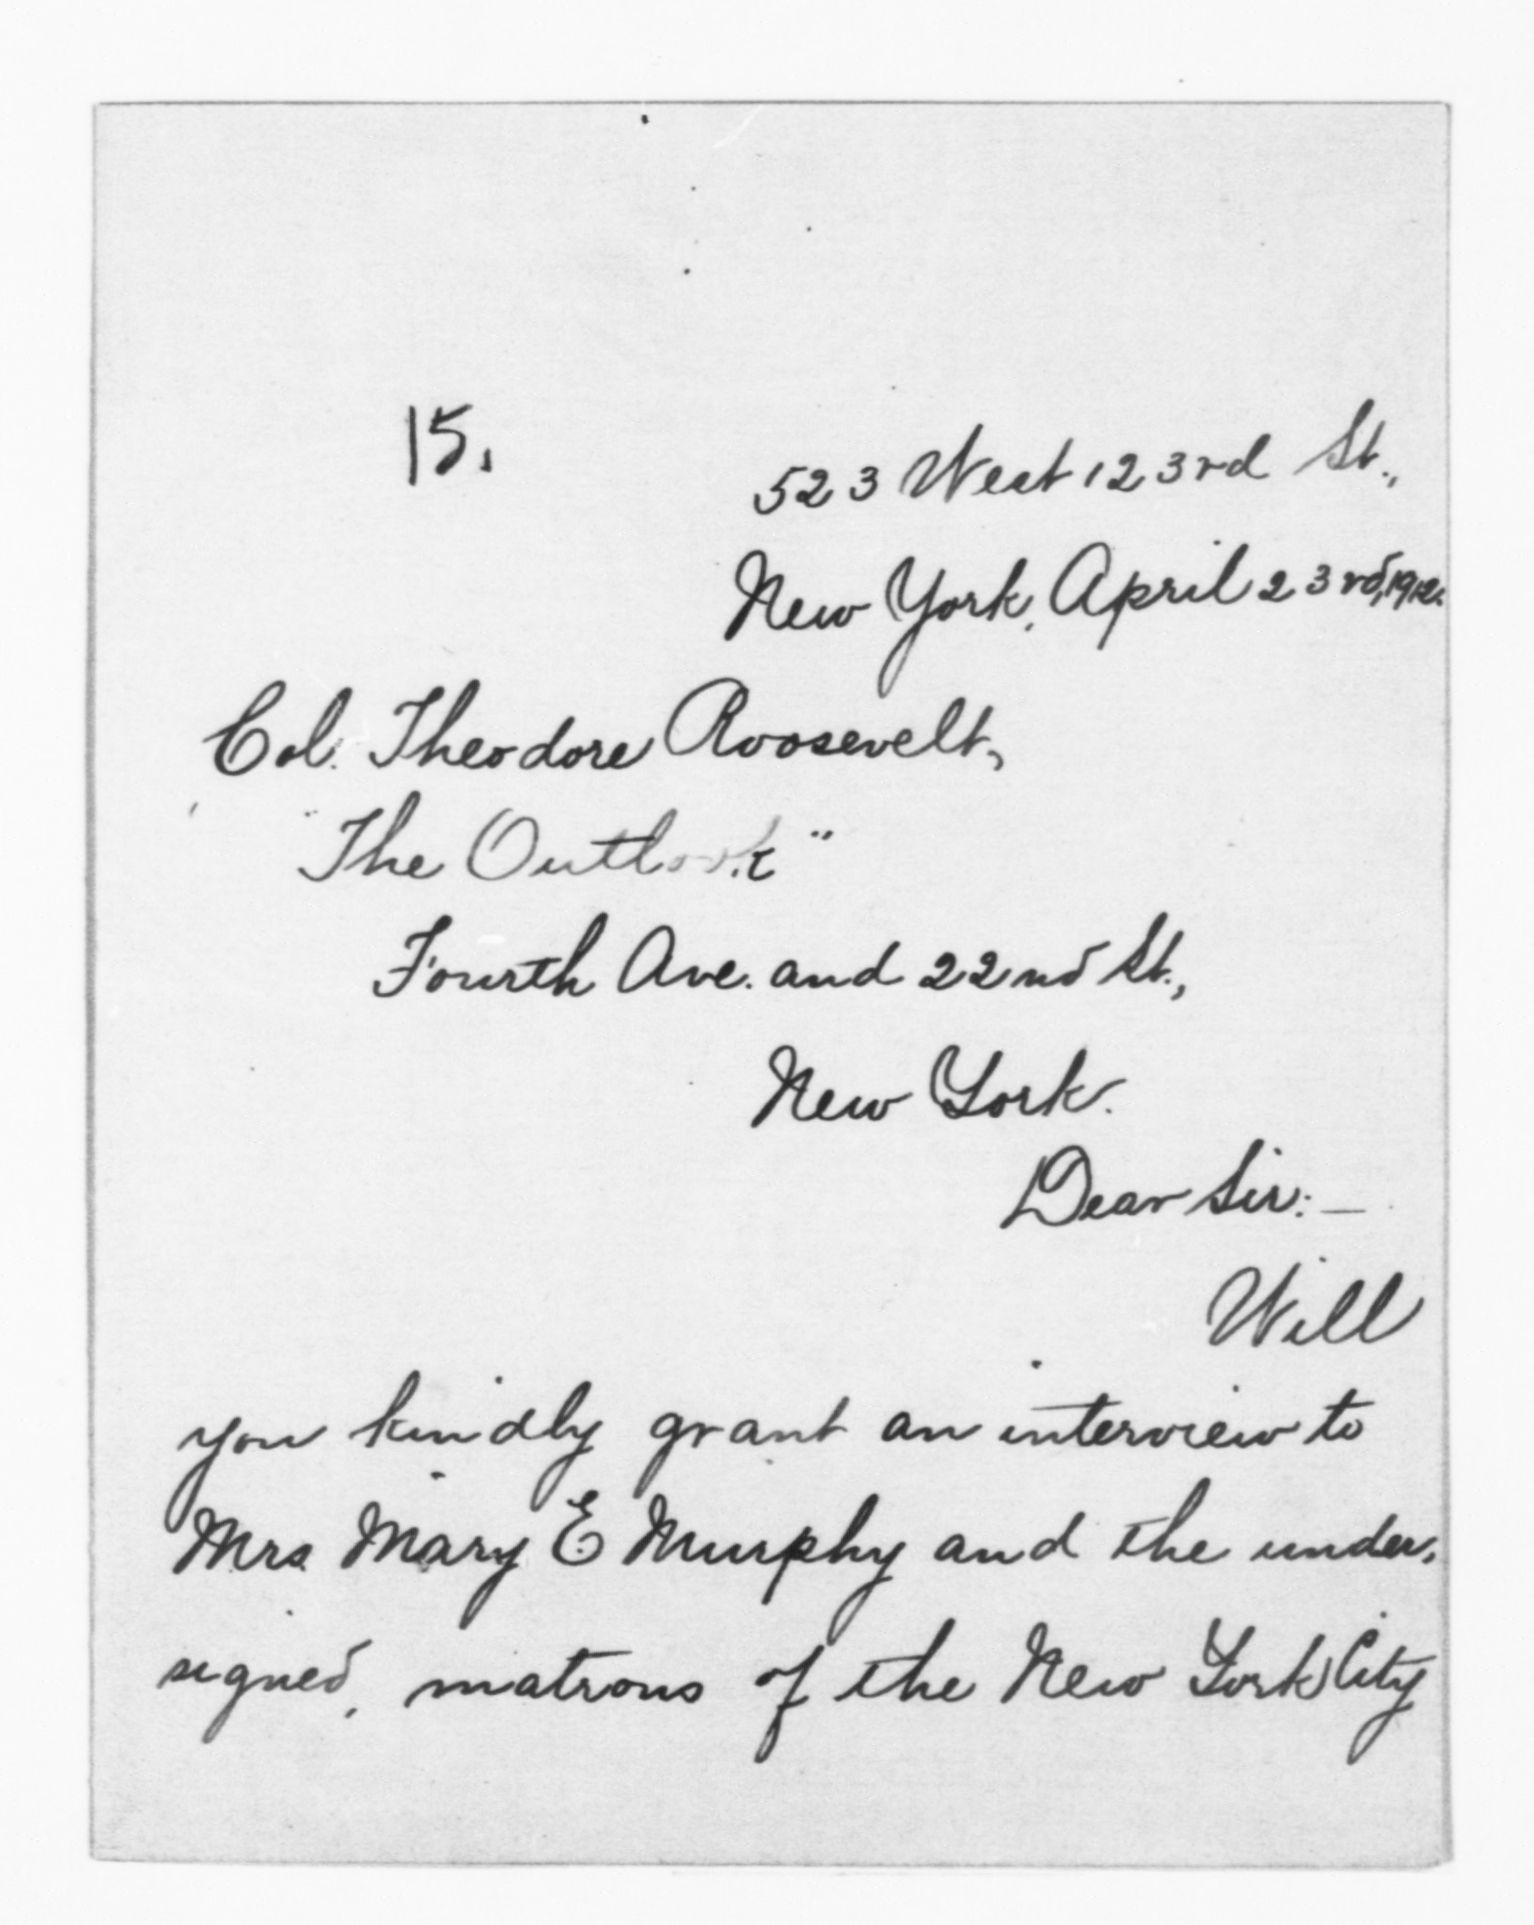 15.
523 West 123rd St.,
New York, April 23rd, 1912.
Col. Theodore Roosevelt,
"The Outlook"
Fourth Ave. and 22nd St.,
New York.
Dear Sir:—
Will
you kindly grant an interview to
Mrs Mary E. Murphy and the under-
signed, matrons of the New York City